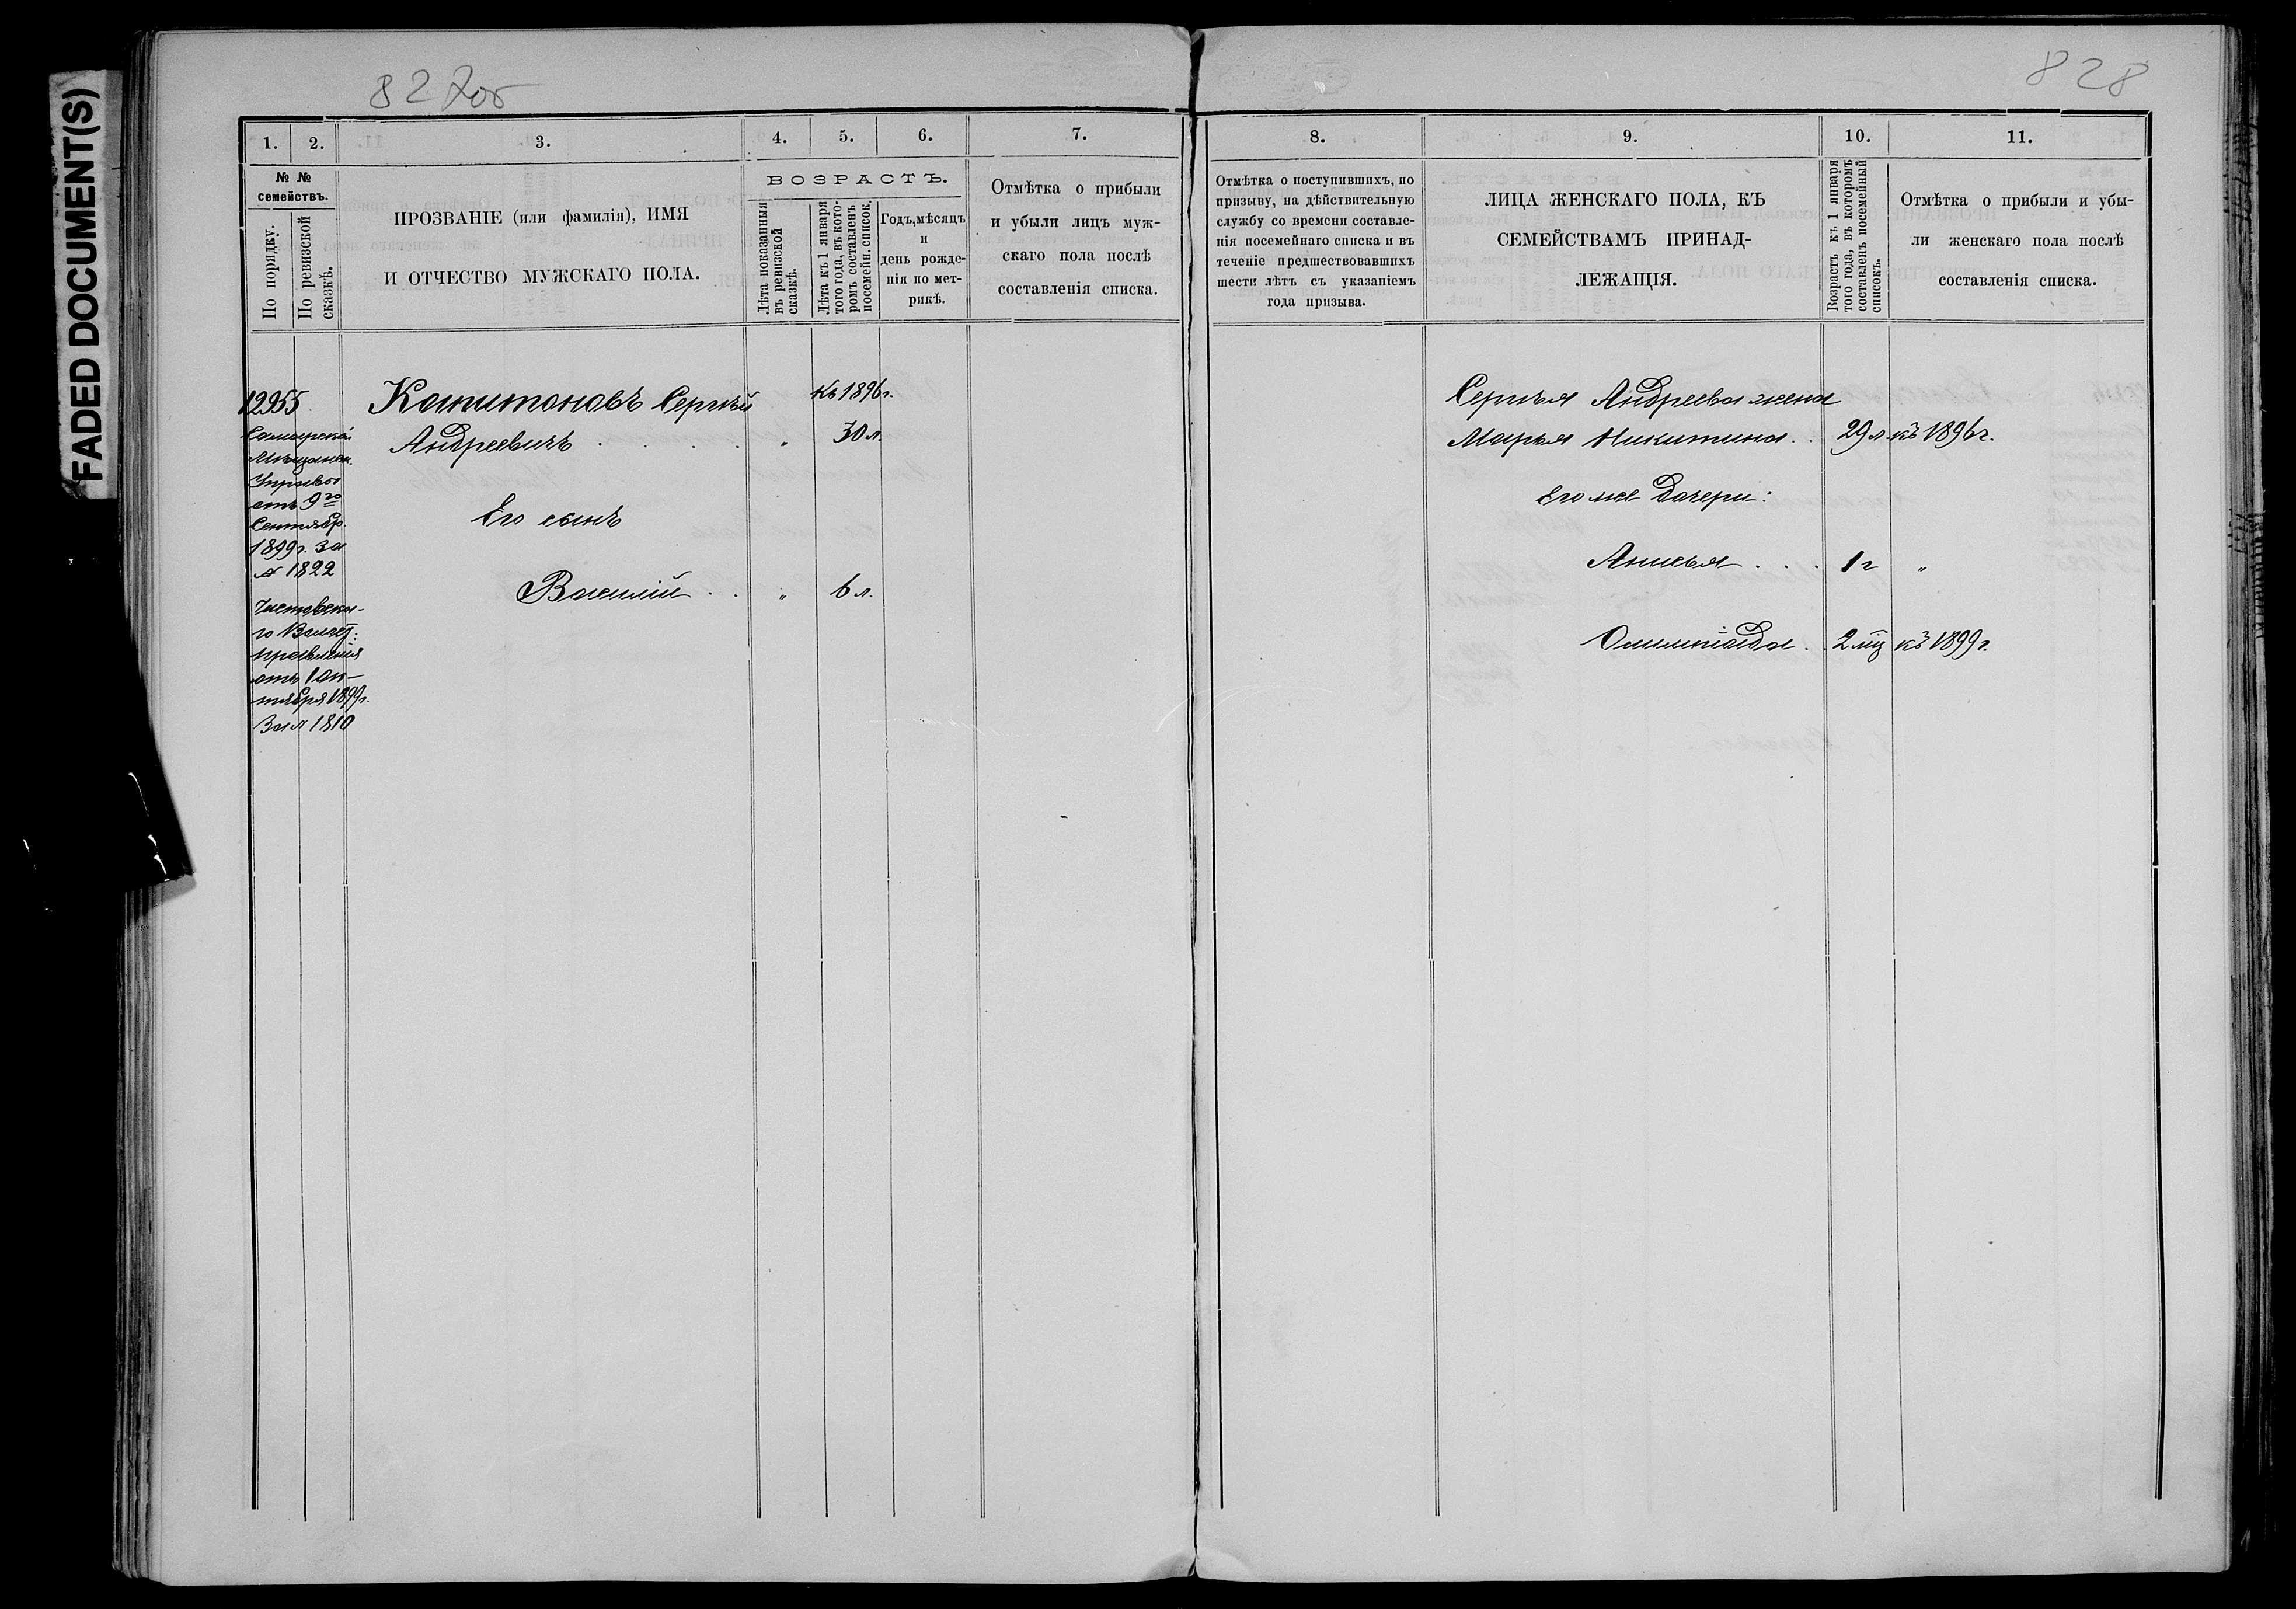 FADED DOCUMENT(S)
827 об
828
1. 2. 3. 4. 5. 6. 7.
№ №
семействъ.
По порядку.
По ревизской
сказкѣ.
ПРОЗВАНІЕ (или фамилія), ИМЯ
И ОТЧЕСТВО МУЖСКАГО ПОЛА.
ВОЗРАСТЪ.
Лѣта показанныя
въ ревизской
сказкѣ.
Лѣта къ 1 января
того года, въ кото-
ромъ составленъ
посемейн. список.
Годъ, мѣсяцъ
и
день рожде-
нія по мет-
рикѣ.
Отмѣтка о прибыли
и убыли лицъ муж-
скаго пола послѣ
составленія списка.
12955
Самарской
Мѣщанск.
Управы
отъ 9го
Сентябр.
1899 г. за
№ 1822
го Волост:
правленія
отъ 1 Ок-
тября 1899 г.
За № 1810
Капитоновъ Сергѣй
Андреевичъ . . . . „
Къ 1896 г.
30 л.
Его сынъ
Василій . . „ 6 л.
8. 9. 10. 11.
Отмѣтка о поступившихъ, по
призыву, на дѣйствительную
службу со времени составле-
нія посемейнаго списка и въ
теченіе предшествовавшихъ
шести лѣтъ съ указаніемъ
года призыва.
ЛИЦА ЖЕНСКАГО ПОЛА, КЪ
СЕМЕЙСТВАМЪ ПРИНАД-
ЛЕЖАЩІЯ.
Возрастъ къ 1 января
того года, въ которомъ
составленъ посемейный
списокъ.
Отмѣтка о прибыли и убы-
ли женскаго пола послѣ
составленія списка.
Сергѣя Андреева жена
Марья Никитина . . 29 л къ 1896 г.
Его же дочери:
Анисья . . . 1 г „
Олимпіада . . 2 мц къ 1899 г.